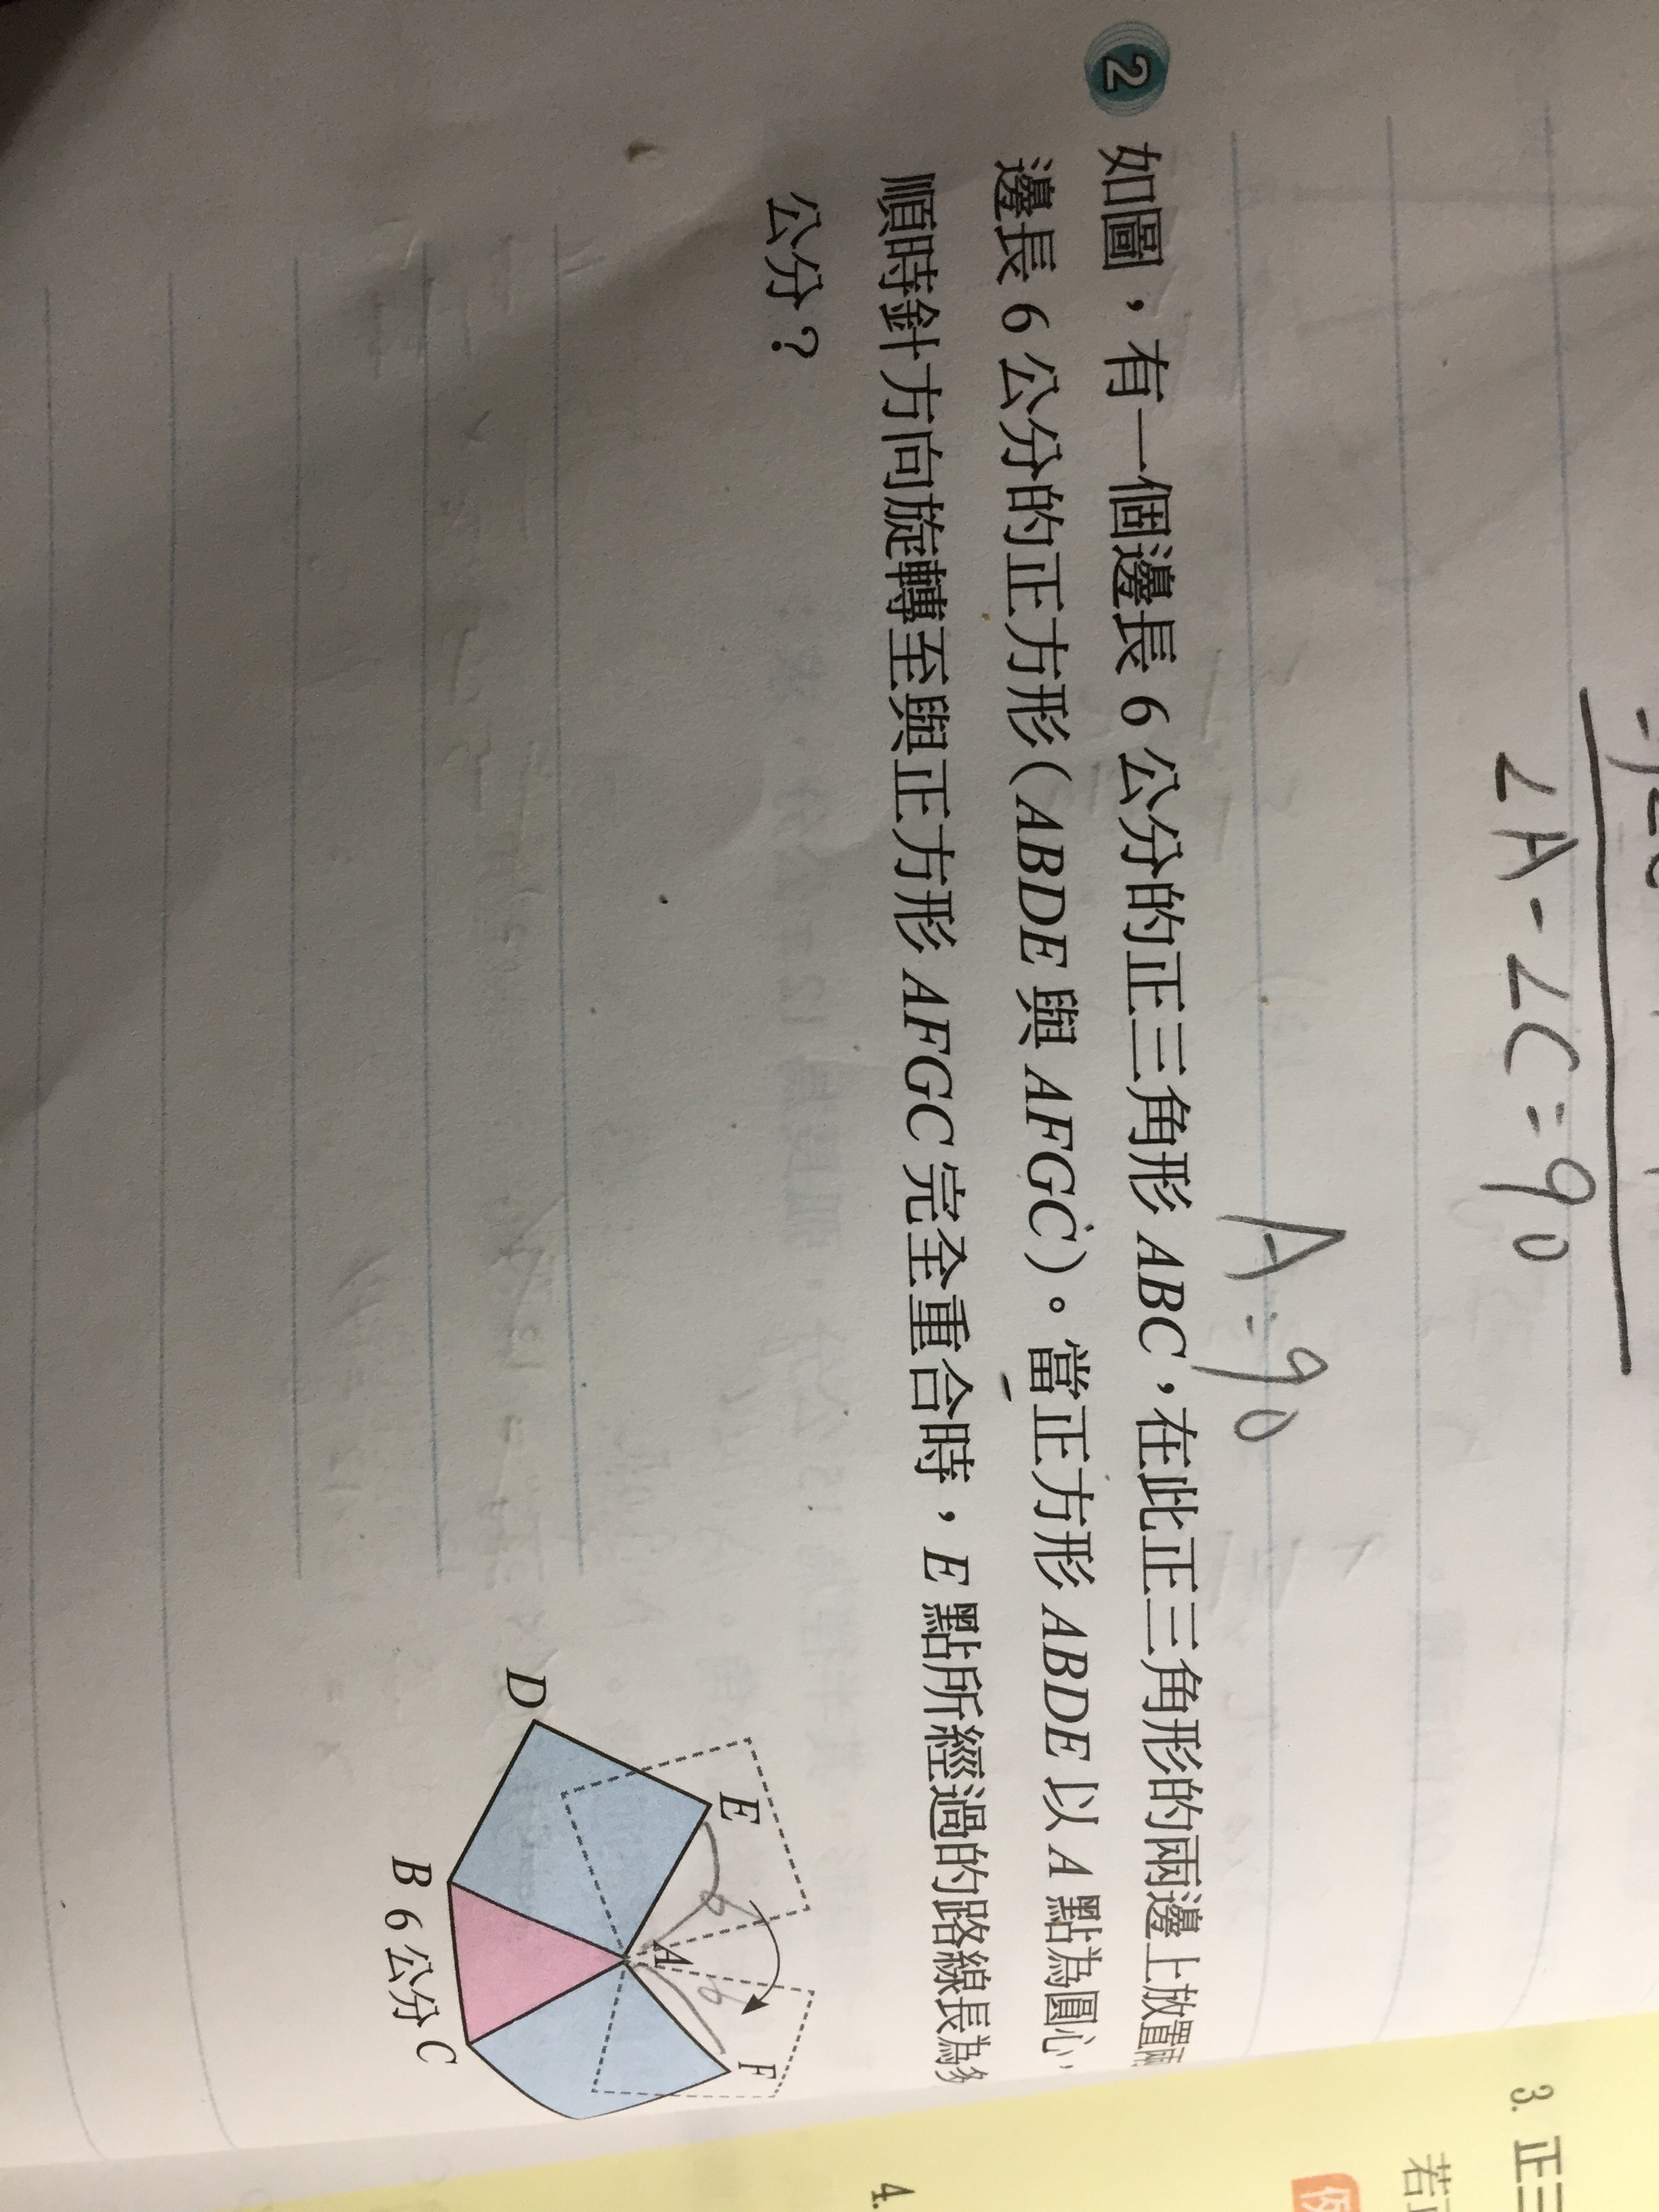 ∠A-∠C=90
A=90
2 如圖，有一個邊長 6 公分的正三角形 ABC，在此正三角形的兩邊上放置兩
邊長 6 公分的正方形（ABDE 與 AFGC）。當正方形 ABDE 以 A 點為圓心，
順時針方向旋轉至與正方形 AFGC 完全重合時，E 點所經過的路線長為多
公分？
E
F
A
6
6
D
B
6 公分
C
3. 正三
若
4.